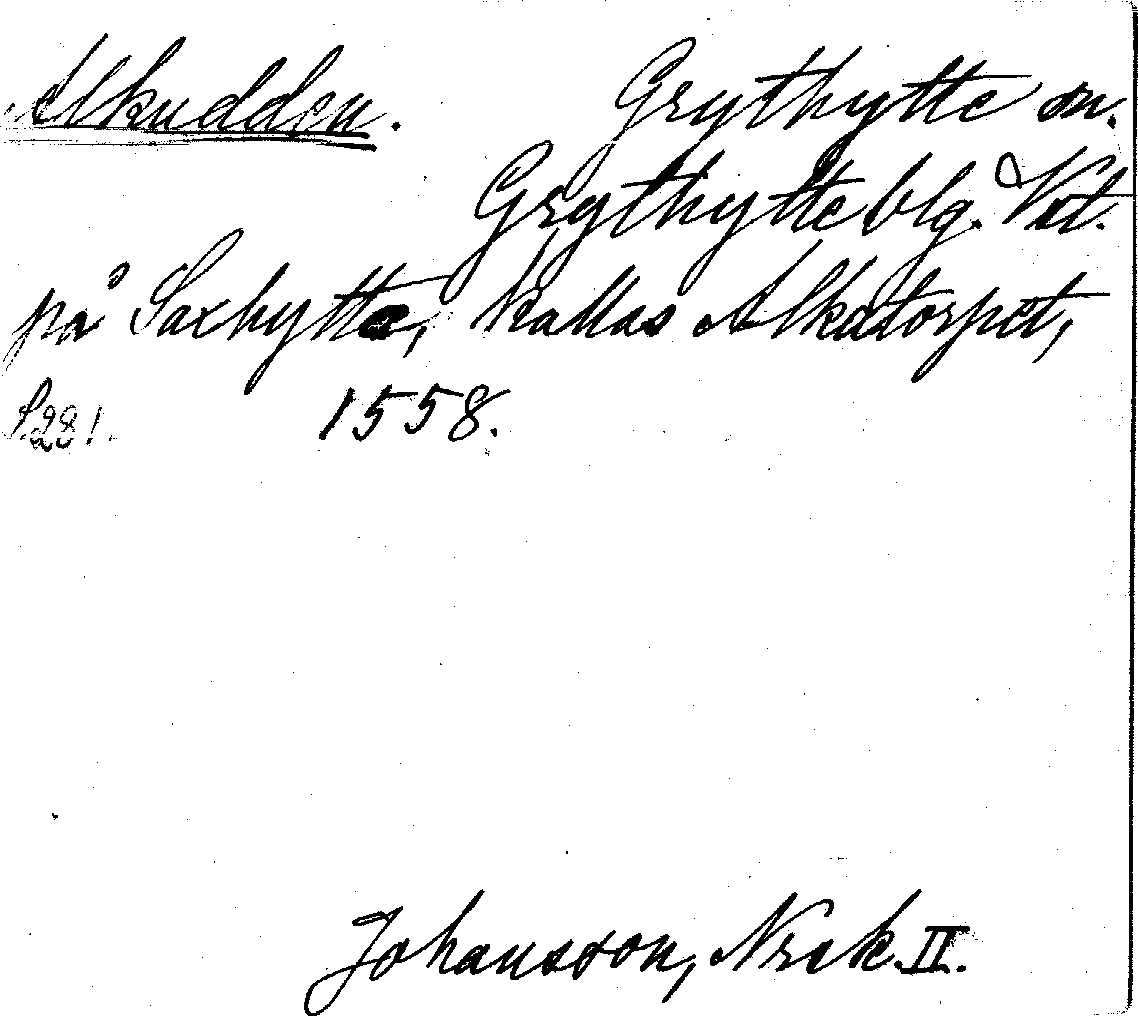 Alkudden. Grythytte sn.
Grythytte blg. Vstl.
på Saxhytte, kallas Alkatorpet,
S. 281. 1558.
Johansson, Norsk. II.